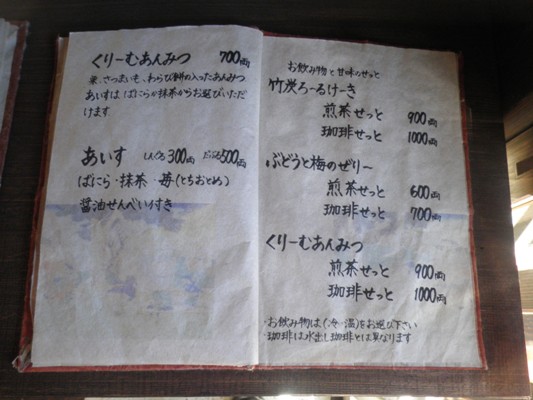 くりーむあんみつ 700円
栗、さつまいも、わらび餅の入ったあんみつ
あいすは、ばにらか抹茶からお選びいただ
けます
あいす しんぐる300円 だぶる500円
ばにら・抹茶・苺(とちおとめ)
醤油せんべい付き
お飲み物と甘味のせっと
竹炭ろーるけーき
煎茶せっと 900円
珈琲せっと 1000円
ぶどうと梅のぜりー
煎茶せっと 600円
珈琲せっと 700円
くりーむあんみつ
煎茶せっと 900円
珈琲せっと 1000円
・お飲み物は(冷・温)をお選び下さい
・珈琲は水出し珈琲とは異なります